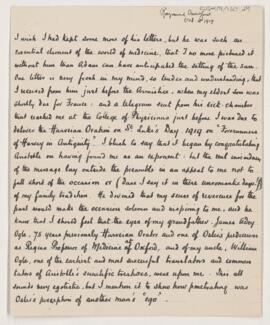 Raymond Crawfurd
Oct. 1919
I wish I had kept some of his letters, but he was such an
essential element of the world of medicine, that I no more pictured it
without him than Adam can have anticipated the setting of the sun.
One letter is very fresh in my mind, so tender and understanding, that
I received from him just before the Armistice, when my eldest son was
shortly due for France: and a telegram sent from his sick-chamber
that reached me at the College of Physicians just before I was due to
deliver the Harveian Oration on St. Luke's Day, 1919 on "Forerunners
of Harvey in Antiquity". I blush to say that it began by congratulating
Aristotle on having found me as an exponent: but the real
of the message lay outside the in an appeal to me not to
fall short of the occasion or (dare I say it in these uncomradely days?)
of my family tradition. He divined that my sense of reverence for the
past would make the occasion solemn and inspiring to me, and he
knew that I should feel that the eyes of my grandfather James Adey
Ogle, 75 years previously Harveian Orator and one of Osler's predecessors
as Regius Professor of Medicine at Oxford, and of my uncle, William
Ogle, one of the earliest and most successful translators and commen-
tators of Aristotle's scientific treatises, were upon me. This all
sounds very egotistic, but I mention it to show how penetrating was
Osler's perception of another man's "ego".